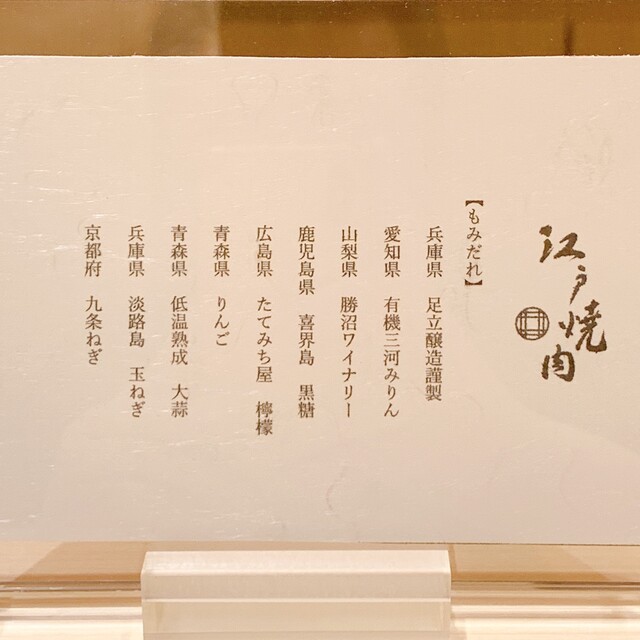 江戸焼肉
【もみだれ】
兵庫県 足立醸造謹製
愛知県 有機三河みりん
山梨県 勝沼ワイナリー
鹿児島県 喜界島 黒糖
広島県 たてみち屋 檸檬
青森県 りんご
青森県 低温熟成 大蒜
兵庫県 淡路島 玉ねぎ
京都府 九条ねぎ